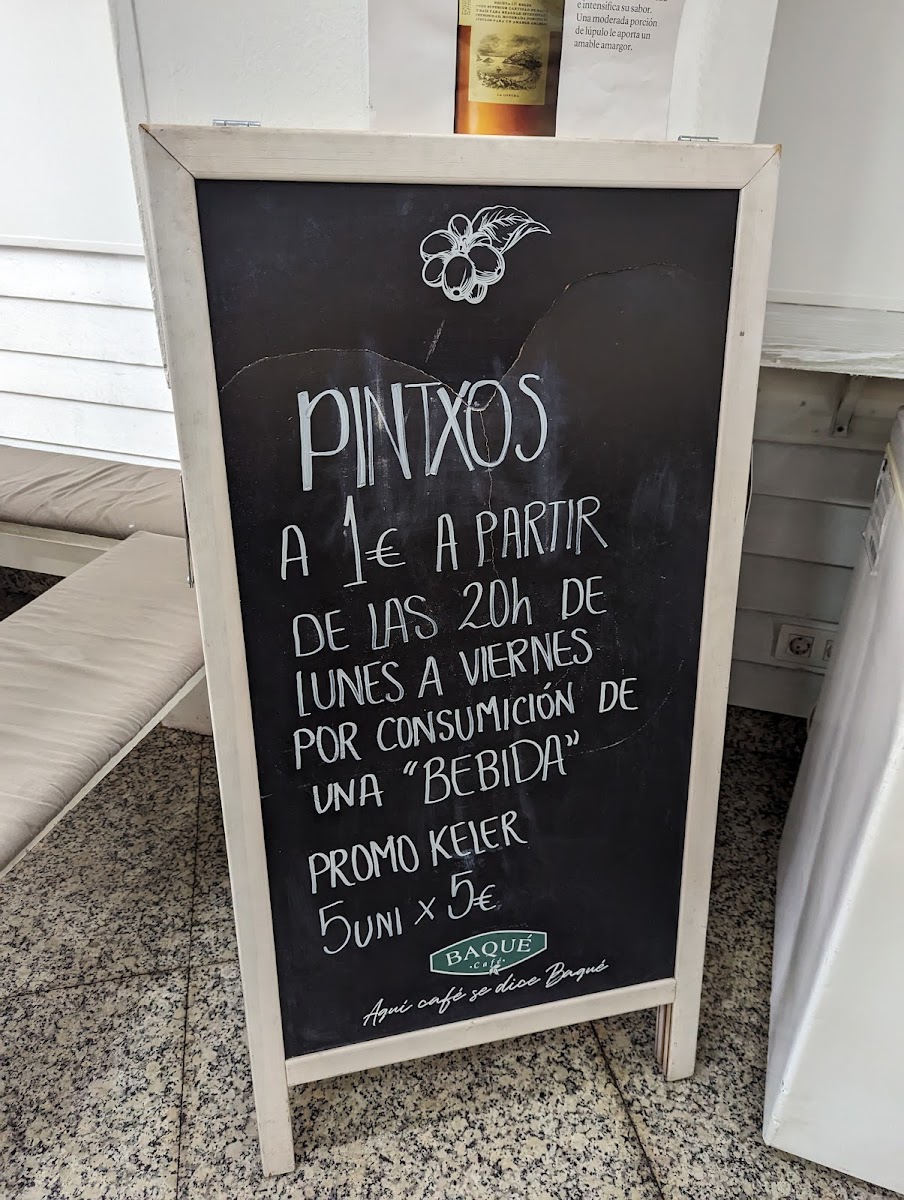 e intensifica su sabor.
Una moderada porción
de lúpulo le aporta un
amable amargor.
PINTXOS
A 1€ A PARTIR
DE LAS 20h DE
LUNES A VIERNES
POR CONSUMICIÓN DE
UNA "BEBIDA"
PROMO KELER
5UNI X 5€
BAQUÉ
·Café·
Aquí café se dice Baqué